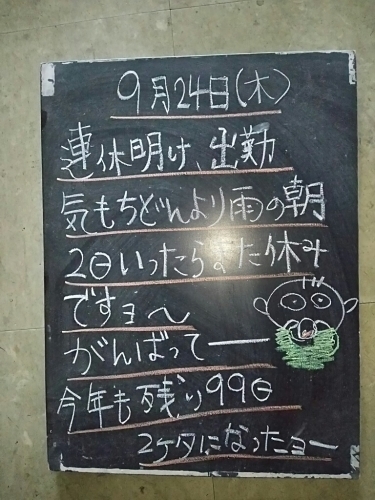 9月24日(木)
連休明け、出勤
気もちどんより雨の朝
2日いったらまた休み
ですョ〜
がんばってー
今年も残り99日
2ケタになったョー